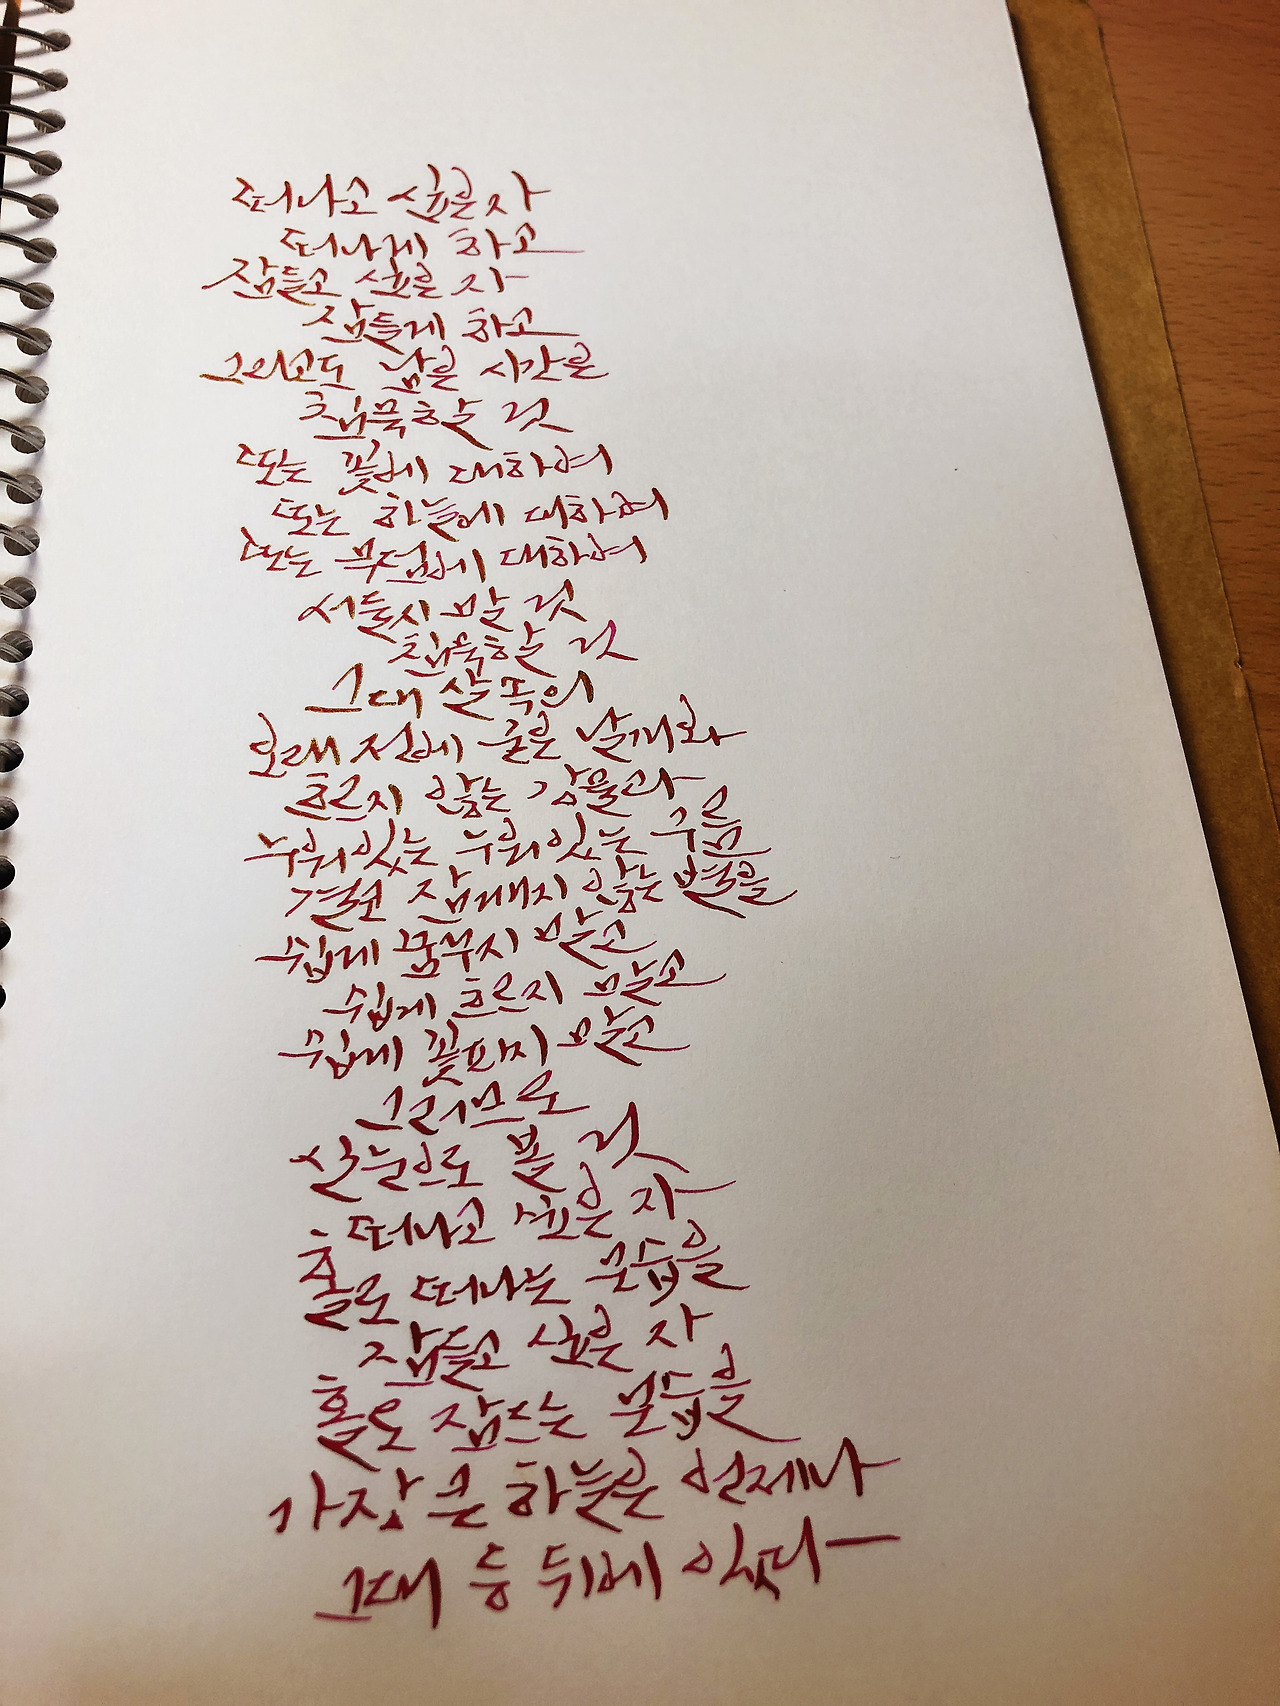 떠나고 싶은 자
떠나게 하고
잠들고 싶은 자
잠들게 하고
그리고도 남은 시간은
침묵할 것
또는 꽃에 대하여
또는 하늘에 대하여
또는 무덤에 대하여
서둘지 말 것
침묵할 것
그대 살 속의
오래 전에 굳은 날개와
흐르지 않는 강물과
누워있는 누워있는 구름
결코 잠깨지 않는 별을
쉽게 꿈꾸지 말고
쉽게 흐르지 말고
쉽게 꽃피지 말고
그러므로
실눈으로 볼 것
떠나고 싶은 자
홀로 떠나는 모습을
잠들고 싶은 자
홀로 잠드는 모습을
가장 큰 하늘은 언제나
그대 등 뒤에 있다